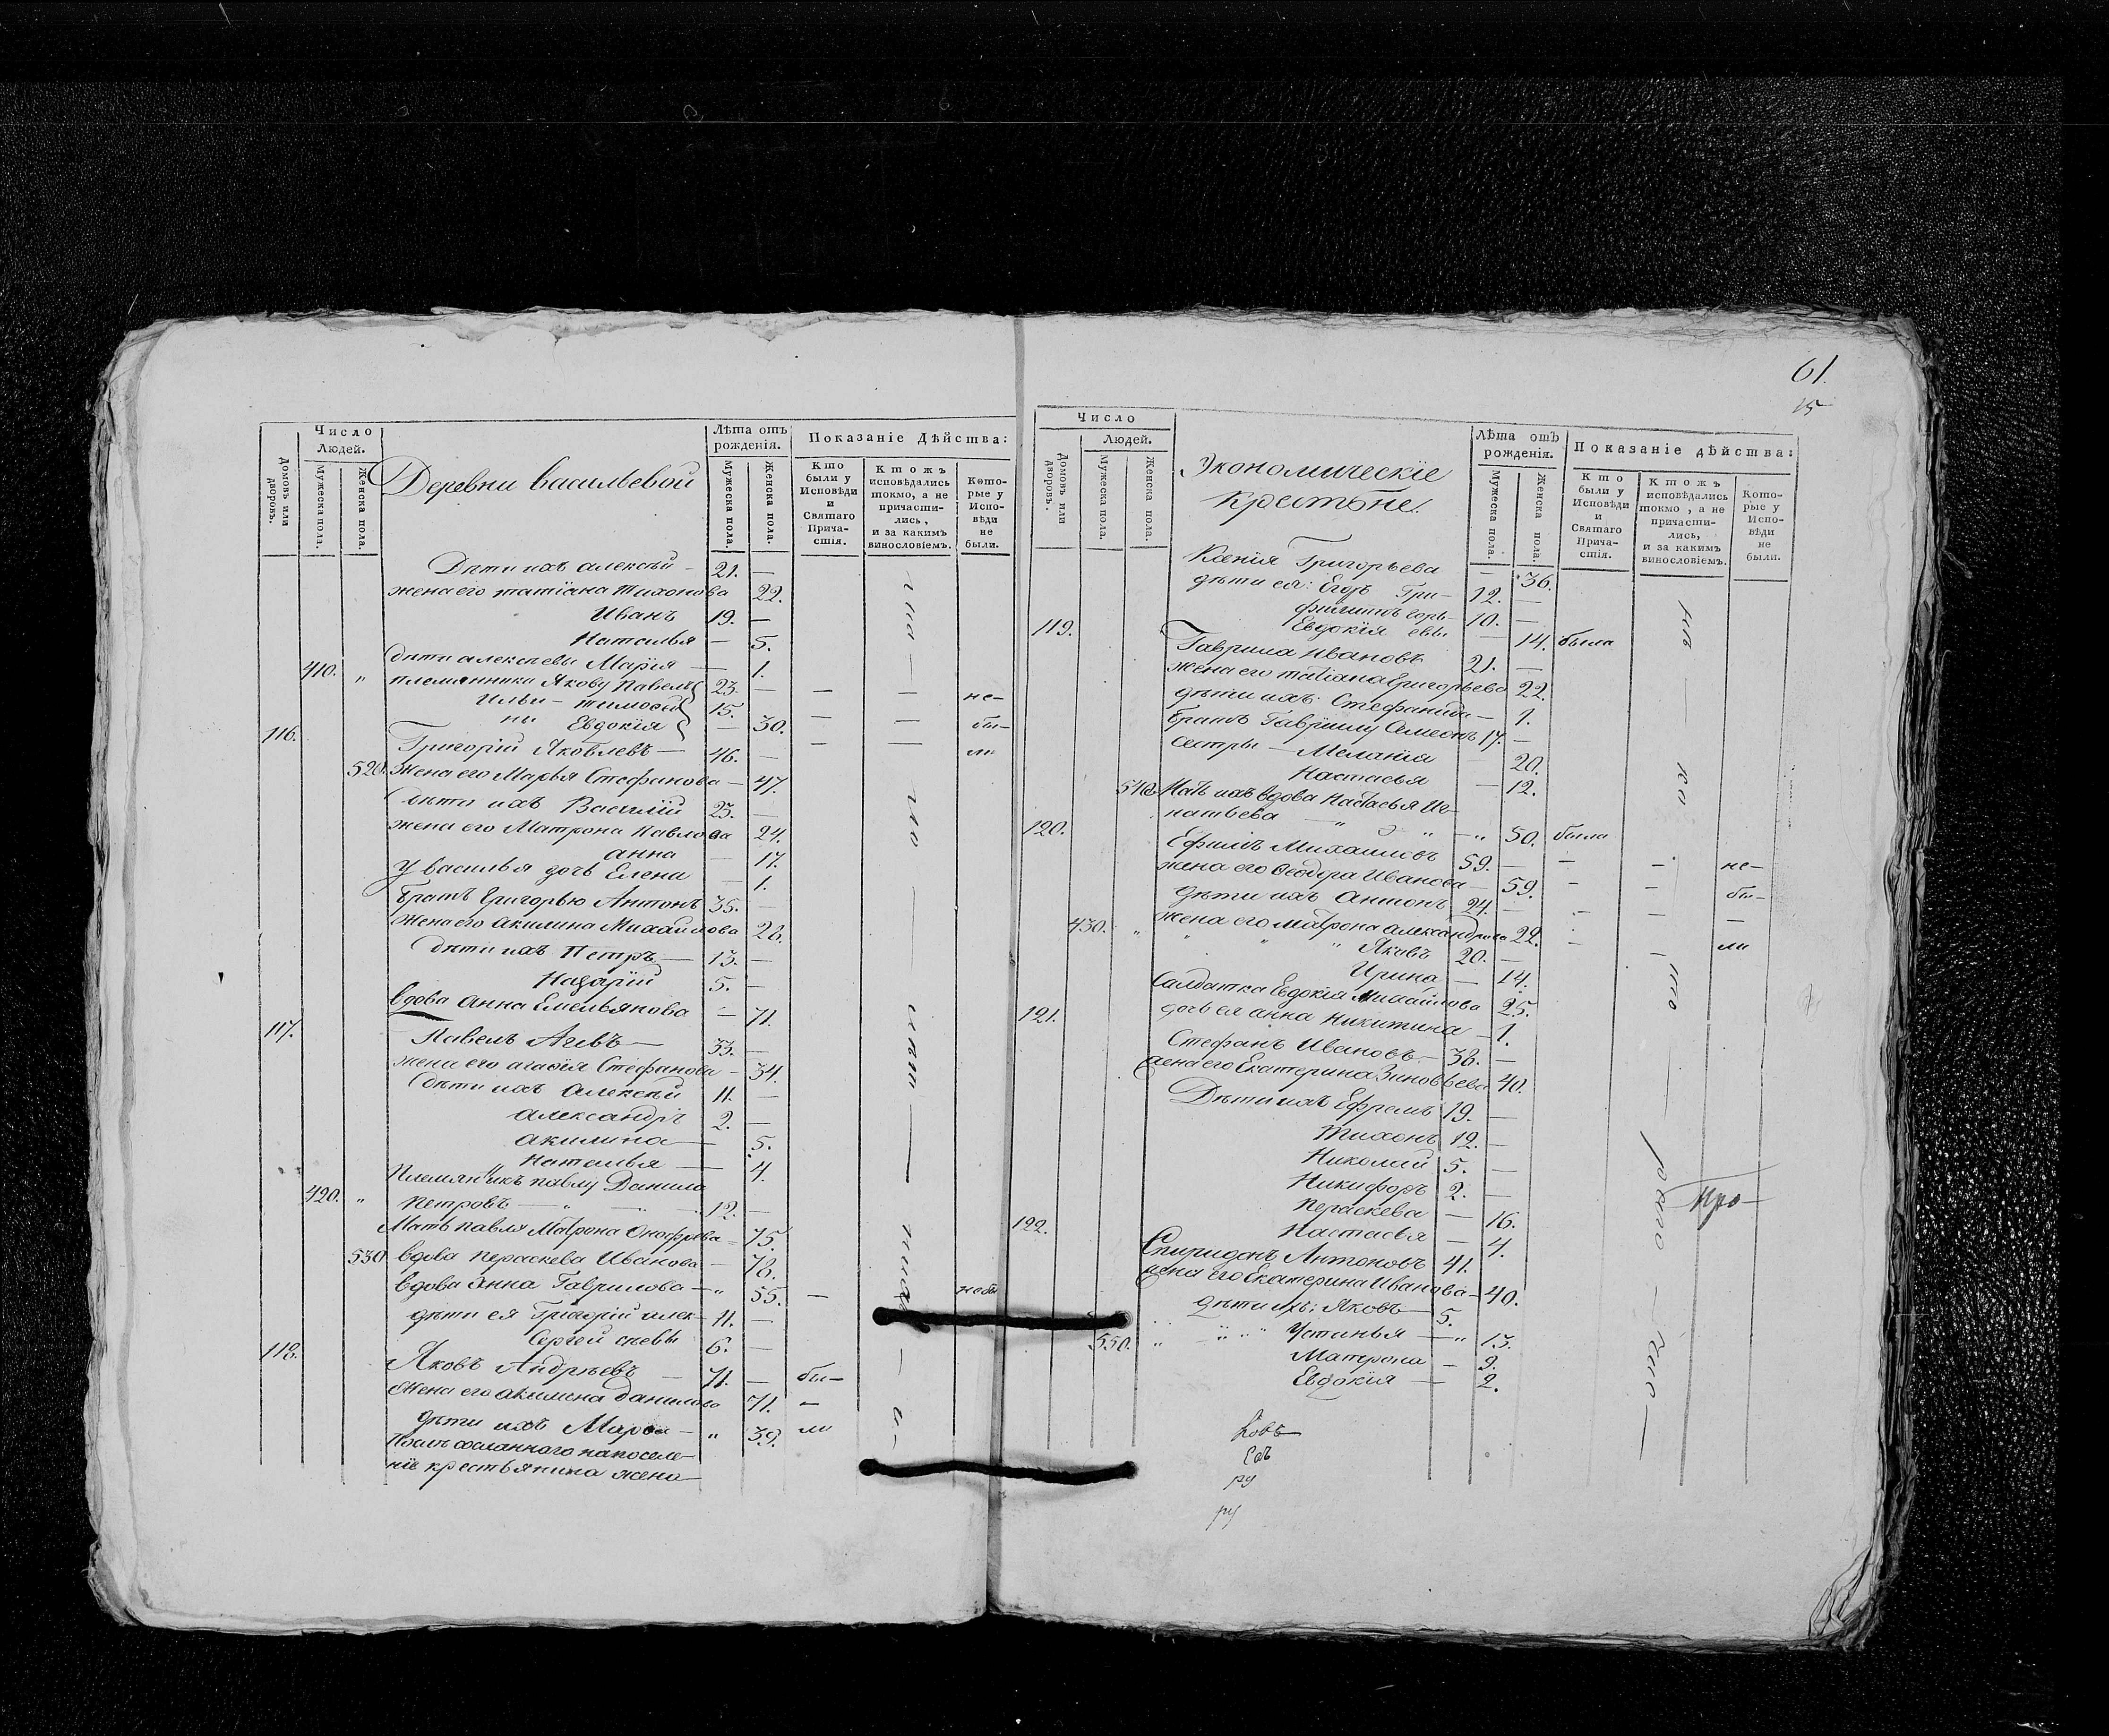 Число
Людей.
Домовъ или дворовъ.
Мужеска пола.
Женска пола.
Деревни Васильевой
Лѣта отъ рожденія.
Мужеска пола.
Женска пола.
Показаніе Дѣйства:
Кто были у Исповѣди и Святаго Причастія.
Ктожъ исповѣдались токмо, а не причастились, и за какимъ винословіемъ.
Которые у Исповѣди не были.
Дѣти ихъ Алексѣй — 21. —
жена его Татіана Тихонова 22.
Иванъ 19. —
Наталья — 5.
дѣти Алексѣевы Марія — 1.
410. „ племянники Якову Павелъ 23. — — — не-
Ильи- Тимофей 15. — — бы-
ны Евдокія — 30. — — ли
116. Григорій Яковлевъ — 46. —
520. жена его Марья Стефанова — 47.
Дѣти ихъ Василій 23. —
жена его Матрона Павлова 24.
Анна — 17.
У Василья дочь Елена — 1.
Братъ Григорью Антонъ 35. —
жена его Акилина Михайлова 28.
Дѣти ихъ Петръ — 13. —
Назарій 5. —
вдова Анна Емельянова — 71.
117. Павелъ — 33. —
жена его Агафія Стефанова — 34.
Дѣти ихъ Алексѣй 11. —
Александръ 2. —
Акилина — 5.
Наталья — 4.
Племянникъ Павлу Данила
420. „ Петровъ — 12. —
Мать Павла Матрона — 75.
530 вдова Пераскева Иванова — 78.
вдова Анна Гаврилова — „ 55. —
дѣти ея Григорій Алек- 11. —
Сергей сѣевы 6. —
118. Яковъ Андрѣевъ — 71. — бы-
Жена его Акилина Данилова 71. —
дѣти ихъ — „ 39. ли
ніе крестьянина жена
61.
15
Число
Людей.
Домовъ или дворовъ.
Мужеска пола.
Женска пола.
Экономическіе
Крестьяне.
Лѣта отъ рожденія.
Мужеска пола.
Женска пола.
Показаніе дѣйства:
Кто были у Исповѣди и Святаго Причастія.
Ктожъ исповѣдались токмо, а не причастились, и за какимъ винословіемъ.
Которые у Исповѣди не были.
Ксенія Григорьева — 36.
дѣти ея: Егоръ Гри- 12. —
Филиппъ горь- 10. —
Евдокія евы — 14. была
119. Гаврила Ивановъ 21. —
жена его Татіана Григорьева 22.
дѣти ихъ: Стефанида — 1.
Братъ Гаврилу Семеонъ 17. —
сестры — Меланія — 20.
Настасья — 12.
540. Мать ихъ вдова Настасья Иг-
натьева — „ „ — „ 50. была
120. Ефимъ Михайловъ 59. — — — не-
жена его Феодора Иванова — 59. — — бы-
дѣти ихъ Антонъ 24. — — — —
430. „ жена его Матрона Александрова 22. — ли
„ „ „ Яковъ 20. —
Ирина — 14.
Салдатка Евдокія Михайлова 25.
дочь ея Анна Никитина — 1.
121. Стефанъ Ивановъ — 38. —
жена его Екатерина Зиновьева 40.
Дѣти ихъ Ефремъ 19. —
Тихонъ 12. —
Николай 5. —
Никифоръ 2. —
Пераскева — 16.
Настасья — 4.
122. Спиридонъ Антоновъ 41.
жена его Екатерина Иванова — 40.
дѣти ихъ: Яковъ — 5.
550. „ „ „ Устинья — „ 13.
Матрона — 9.
Евдокія — 2.
Про-